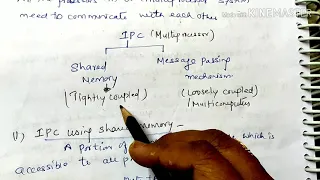 Made with KINEMASTER
system
need to communicate with each other
IPC (Multiprocessor)
Shared Memory
(Tightly coupled)
Message Passing mechanism
(Loosely coupled)
Multicomputer
1) IPC using shared memory -
A portion of which is
accessible to all